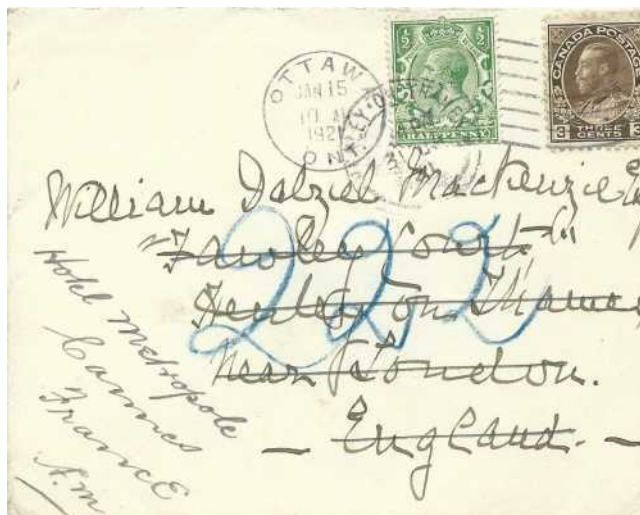 OTTAWA
JAN 15
10 AM
192
ONT.
½ ½
HALFPENNY
CANADA POSTAGE
3 THREE CENTS 3
William Dalziel Mackenzie
"Fawley Court"
Henley on Thames
near London.
— England. —
222
Hotel Metropole
Cannes
France
A.M